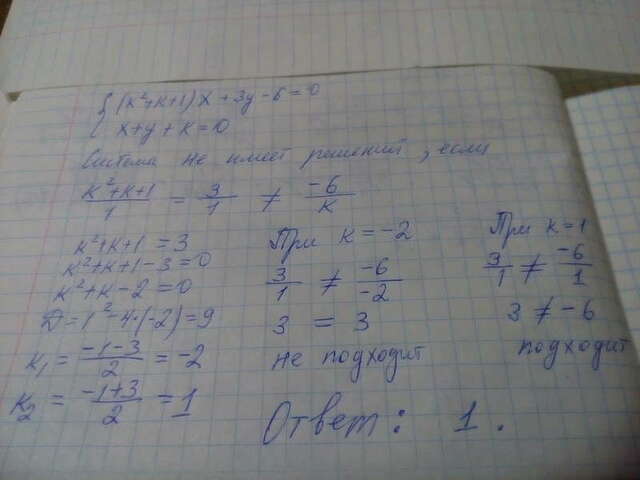 {(k²+k+1)x + 3y - 6 = 0
x + y + k = 0
Система не имеет решений, если
k²+k+1/1 = 3/1 ≠ -6/k
k²+k+1 = 3
k²+k+1-3 = 0
k²+k-2 = 0
D = 1²-4·(-2) = 9
k₁ = -1-3/2 = -2
k₂ = -1+3/2 = 1
При k = -2
3/1 ≠ -6/-2
3 = 3
не подходит
При k = 1
3/1 ≠ -6/1
3 ≠ -6
подходит
Ответ: 1.